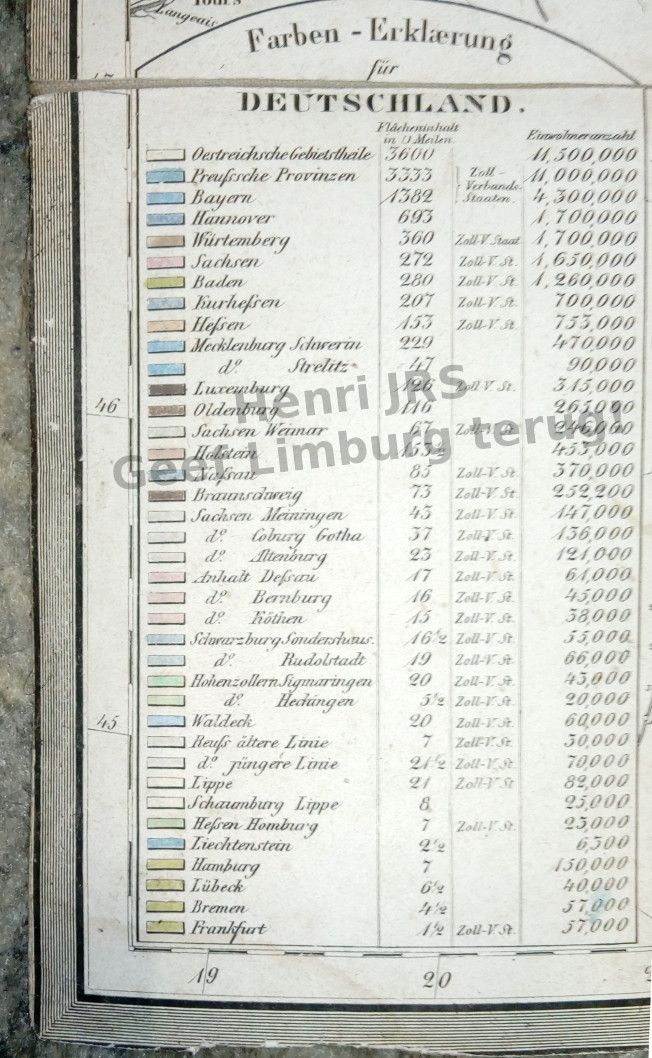 Tours
Langeais
Farben - Erklærung
für
DEUTSCHLAND.
Flächeninhalt in □ Meilen. Einwohneranzahl
Oestreichsche Gebietstheile 3600 11,500,000
Preußsche Provinzen 3333 Zoll-Verbands Staaten. 11,000,000
Bayern 1382 4,300,000
Hannover 693 1,700,000
Würtemberg 360 Zoll-V. Staat 1,700,000
Sachsen 272 Zoll-V. St. 1,650,000
Baden 280 Zoll-V. St. 1,260,000
Kurheßen 207 Zoll-V. St. 700,000
Heßen 153 Zoll-V. St. 753,000
Mecklenburg Schwerin 229 470,000
do. Strelitz 47 90,000
Luxemburg 126 Zoll-V. St. 315,000
Oldenburg 116 265,000
Sachsen Weimar 67 Zoll-V. St. 246,000
Holstein 153½ 453,000
Naßau 85 Zoll-V. St. 370,000
Braunschweig 73 Zoll-V. St. 252,200
Sachsen Meiningen 43 Zoll-V. St. 147,000
do. Coburg Gotha 37 Zoll-V. St. 136,000
do. Altenburg 23 Zoll-V. St. 121,000
Anhalt Deßau 17 Zoll-V. St. 61,000
do. Bernburg 16 Zoll-V. St. 45,000
do. Köthen 15 Zoll-V. St. 38,000
Schwarzburg Sondershaus. 16½ Zoll-V. St. 55,000
do. Rudolstadt 19 Zoll-V. St. 66,000
Hohenzollern Sigmaringen 20 Zoll-V. St. 43,000
do. Hechingen 5½ Zoll-V. St. 20,000
Waldeck 20 Zoll-V. St. 60,000
Reuß ältere Linie 7 Zoll-V. St. 30,000
do. jüngere Linie 21½ Zoll-V. St. 70,000
Lippe 21 Zoll-V. St 82,000
Schaumburg Lippe 8 25,000
Heßen Homburg 7 Zoll-V. St. 23,000
Liechtenstein 2½ 6,300
Hamburg 7 150,000
Lübeck 6½ 40,000
Bremen 4½ 57,000
Frankfurt 1½ Zoll-V. St. 57,000
46
45
19 20
Henri JRS
Geef Limburg terug!